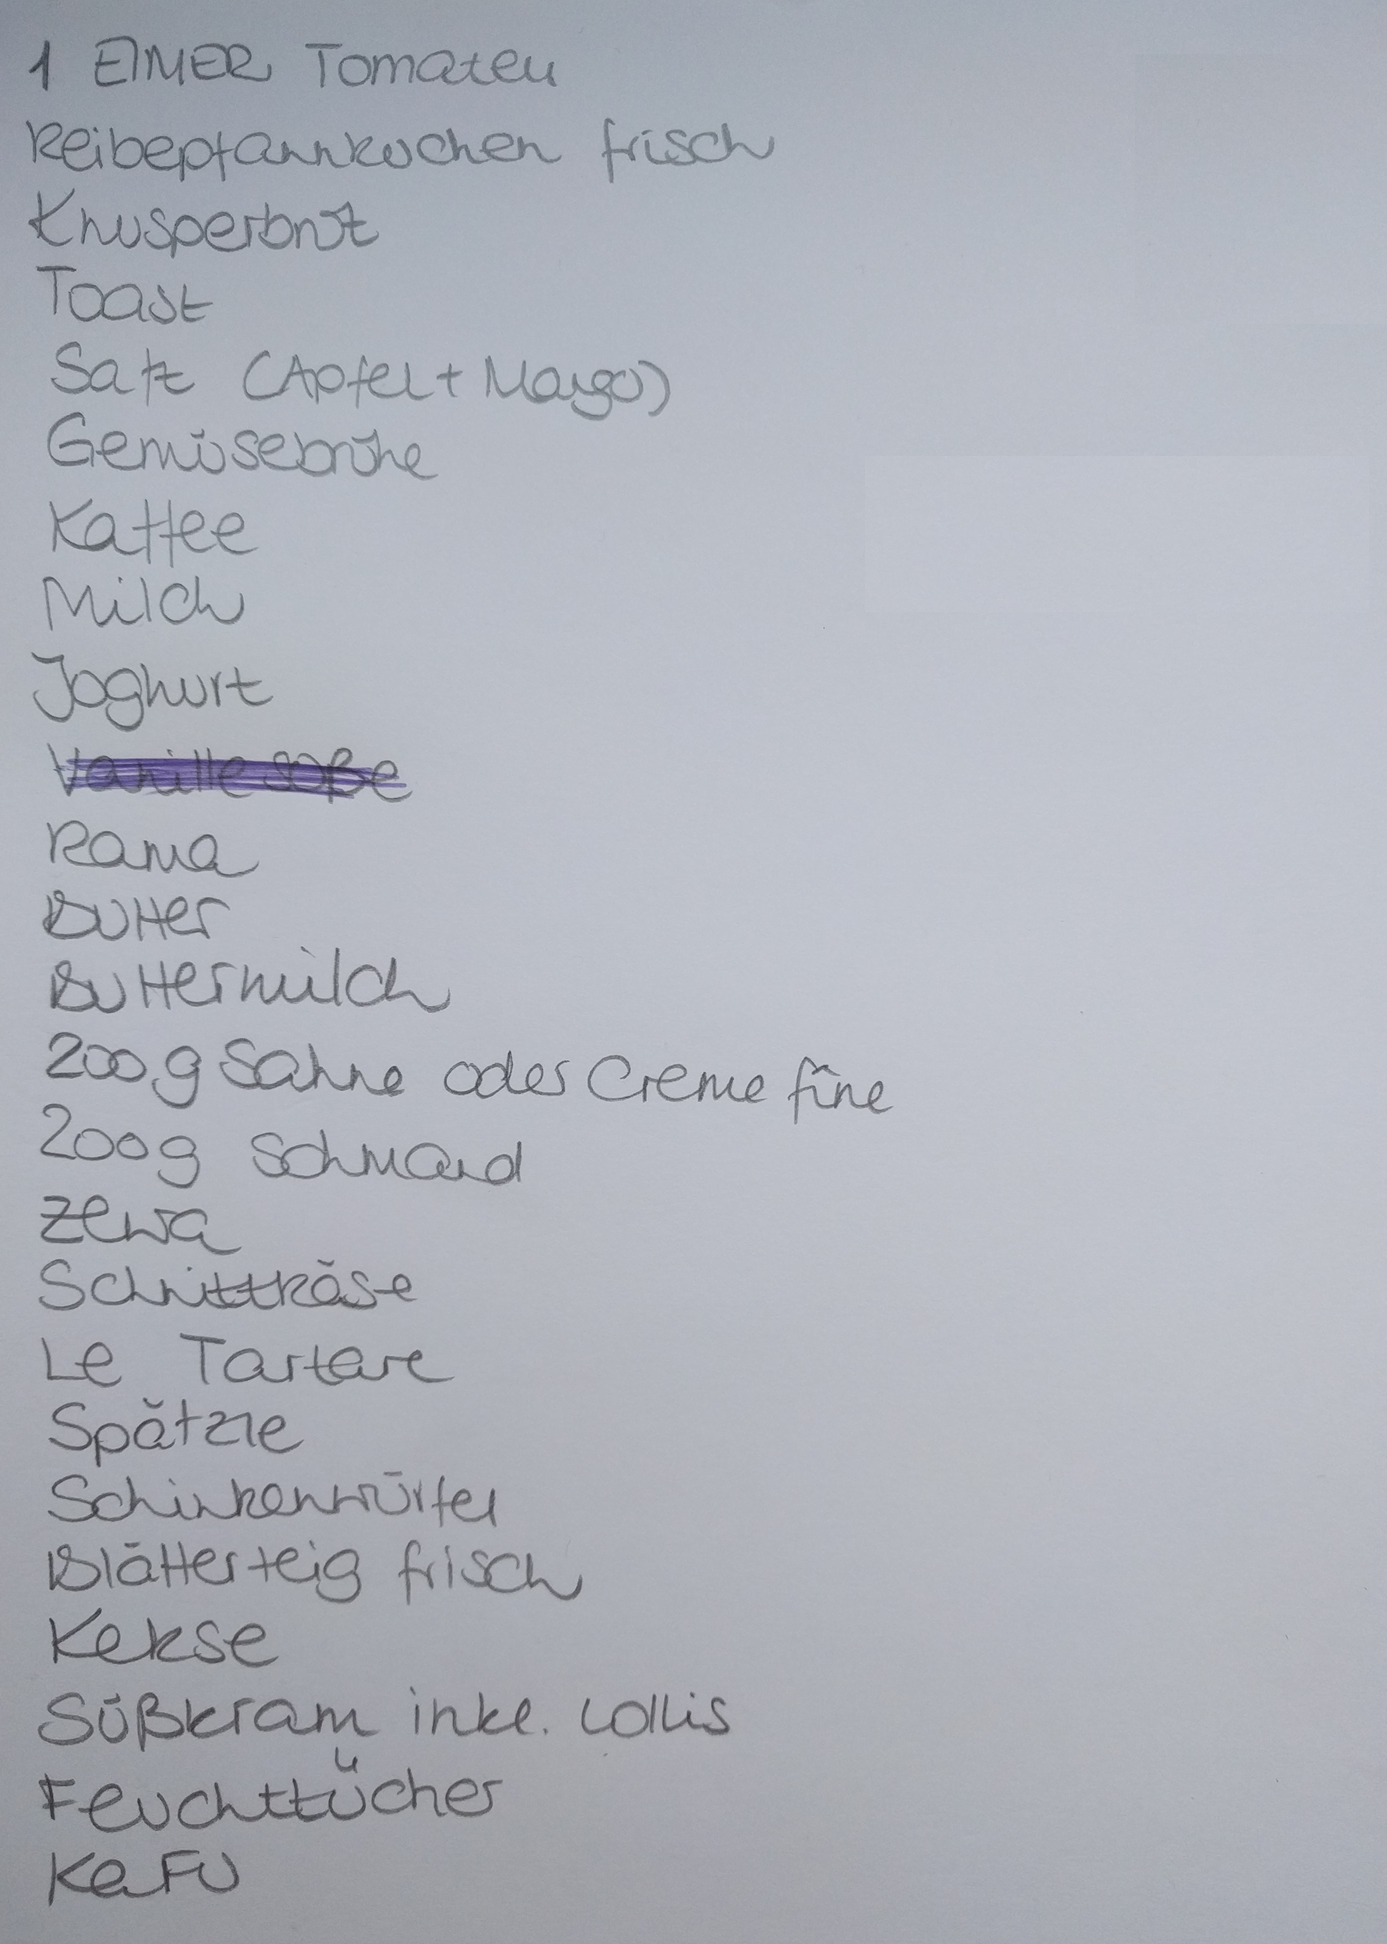 1 EIMER Tomaten
Reibepfannkuchen frisch
Knusperbrot
Toast
Saft (Apfel + Mango)
Gemüsebrühe
Kaffee
Milch
Joghurt
Vanillesoße
Rama
Butter
Buttermilch
200 g Sahne oder Creme fine
200g Schmand
Zewa
Schnittkäse
Le Tartare
Spätzle
Schinkenwürfel
Blätterteig frisch
Kekse
Süßkram inkl. Lollis
Feuchttücher
KaFU